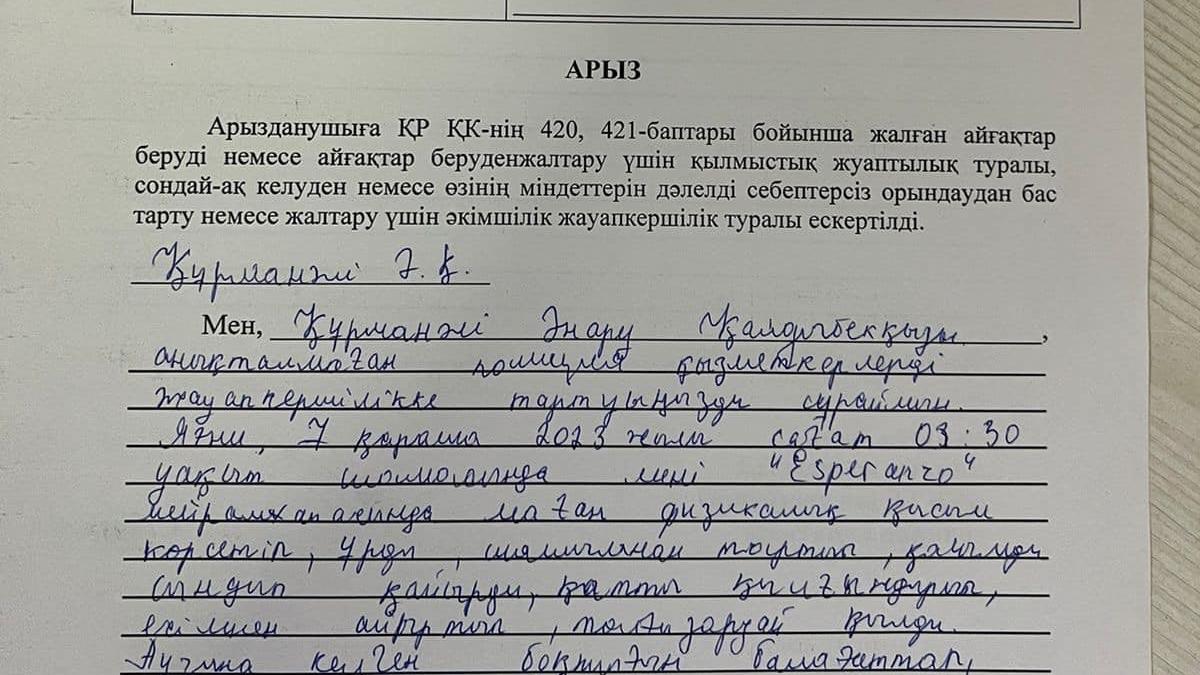 АРЫЗ
Арызданушыға ҚР ҚК-нің 420, 421-баптары бойынша жалған айғақтар
беруді немесе айғақтар беруденжалтару үшін қылмыстық жуаптылық туралы,
сондай-ақ келуден немесе өзінің міндеттерін дәлелді себептерсіз орындаудан бас
тарту немесе жалтару үшін әкімшілік жауапкершілік туралы ескертілді.
Құрманәлі Ә. Қ.
Мен, Құрманәлі Әнару Қалдыбекқызы,
анықталмаған полиция қызметкерлерді
жауапкершілікке тартуыңызды сұраймын.
Яғни, 7 қараша 2023 жылы сағат 03:30
уақыт шамасында мені "Esperanzo"
мейрамханасында маған физикалық қысым
көрсетіп, ұрды, шашымнан тартып, қолымды
сындып қайырды, қатты қыйғындырып,
есімнен айыртып,
Аузына келген боқтығын балағаттап,